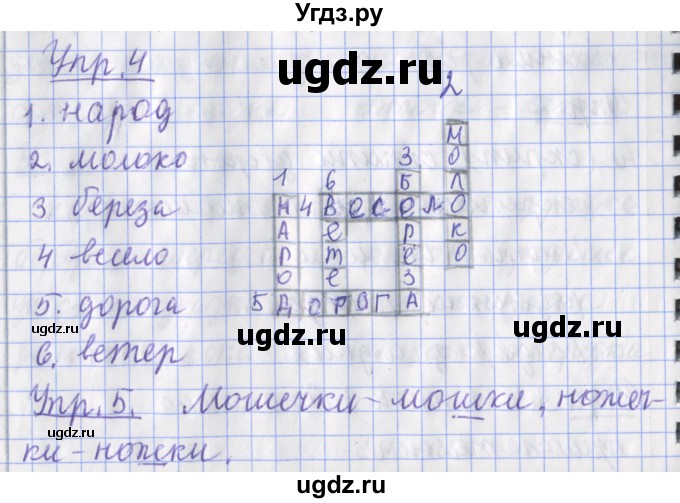 Угдз.ру
Упр. 4
ugdz.ru
2
1. народ
2. молоко
3. береза
4 весело
5. дорога
6. ветер
1 6 3.
М О Л О К О
Н А Р О Д
В Е Т Е Р
Б Е Р Ё З А
4 В Е С Е Л О
5 Д О Р О Г А
ugdz.ru
ugdz.ru
ugdz.ru
ugdz.ru
Упр. 5. Мошечки - мошки, ножеч-
ки - ножки.
ugdz.ru
ugdz.ru
ugdz.ru